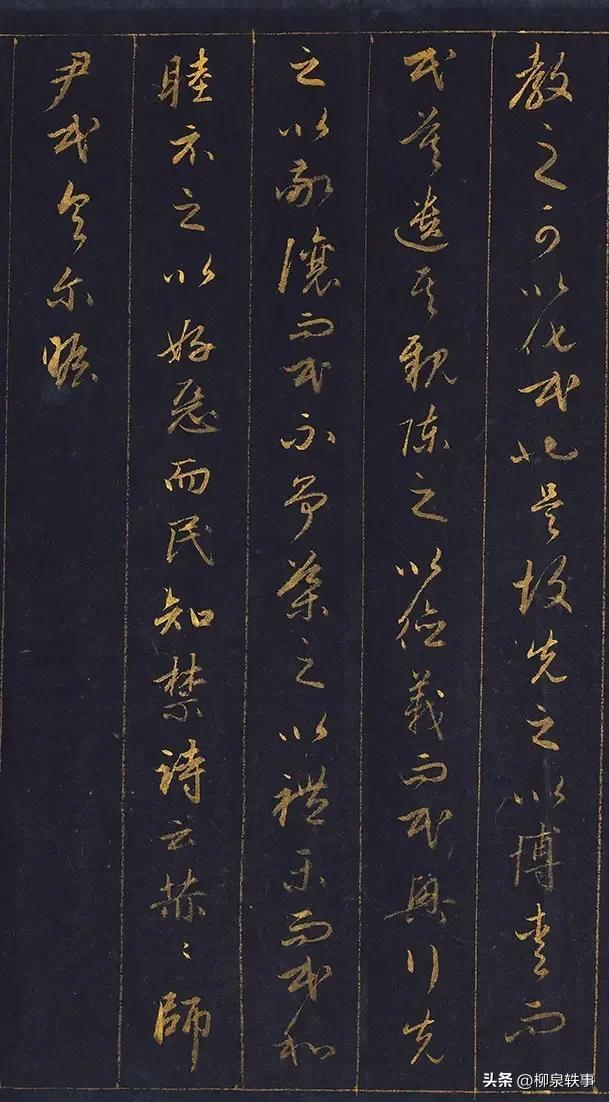 教之可以化民也是故先之以博愛而
民莫遺其親陳之以德義而民興行先
之以敬讓而民不爭導之以禮樂而民和
睦示之以好惡而民知禁詩云赫〻師
尹民具尔瞻
头条 @柳泉轶事